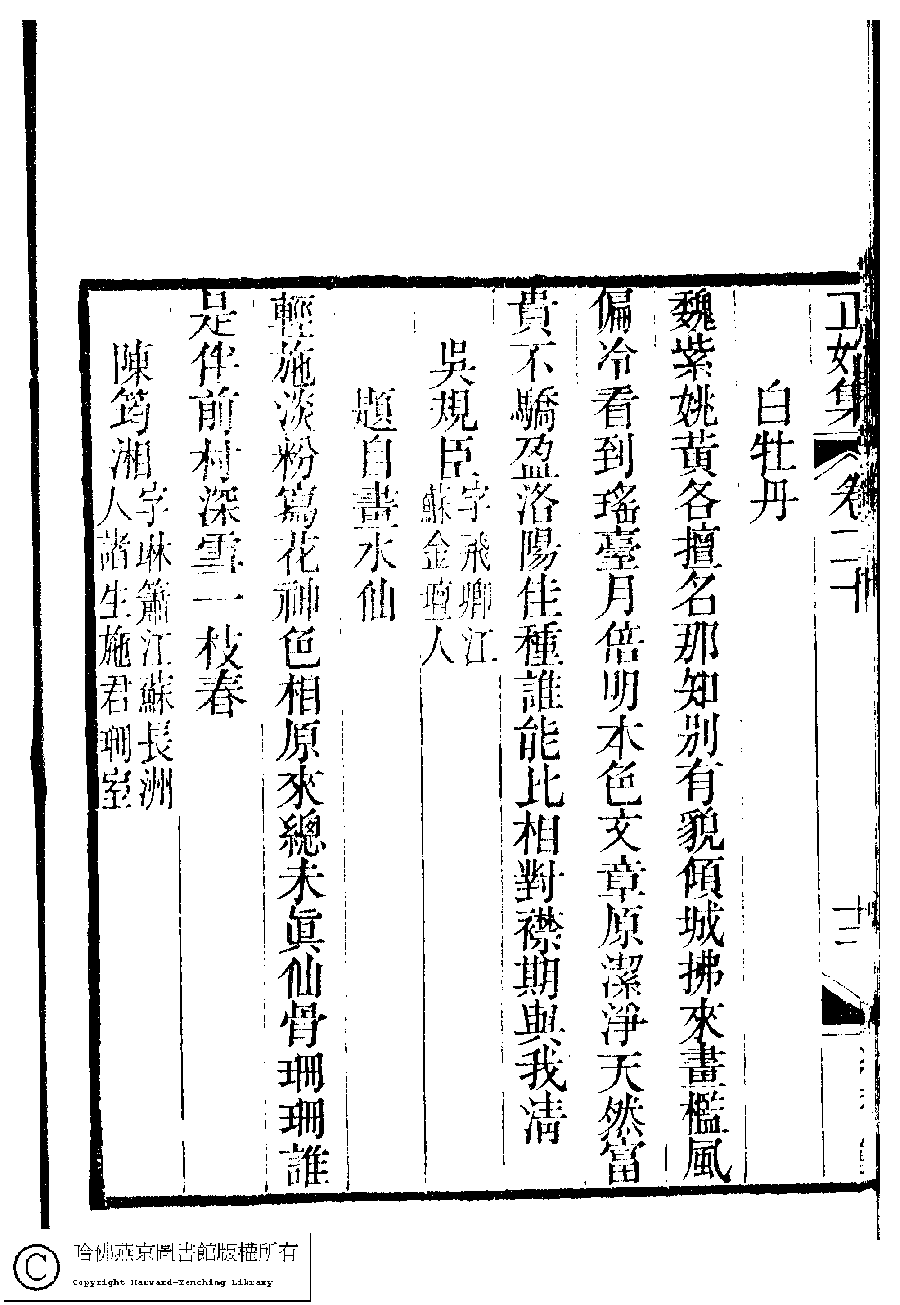 正始集 卷二十
十二
白牡丹
魏紫姚黃各擅名那知別有貌傾城拂來畫檻風
偏冷看到瑤臺月倍明本色文章原潔淨天然富
貴不驕盈洛陽佳種誰能比相對襟期與我清
吳規臣字飛卿江蘇金壇人
題自畫水仙
輕施淡粉寫花神色相原來總未眞仙骨珊珊誰
是伴前村深雪一枝春
陳筠湘字琳簫江蘇長洲人諸生施君珊室
哈佛燕京圖書館版權所有
Copyright Harvard-Yenching Library